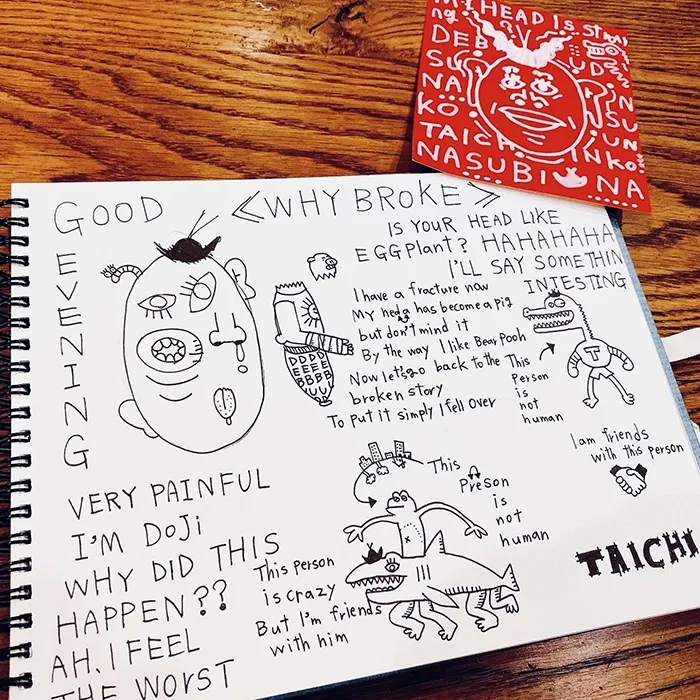 GOOD
EVENING
<WHY BROKE>
IS YOUR HEAD LIKE
EGGPlant? HAHAHAHA
I'LL SAY SOMETHIN
INTESTING
I have a fracture now
My hedg has become a pig
but don't mind it
By the way I like Bear Pooh
Now let's go back to the
broken story
To put it simply I fell over
This
Person
is
not
human
I am friends
with this person
T
DDDD
EEEE
BBBB
UUU
This
Preson
is
not
human
This person
is crazy
But I'm friends
with him
VERY PAINFUL
I'M DOJi
WHY DID THIS
HAPPEN??
AH, I FEEL
THE WORST
TAICHI
MY HEAD IS
DEB
SU
NA
KO
TAICH
NASUBI
NA